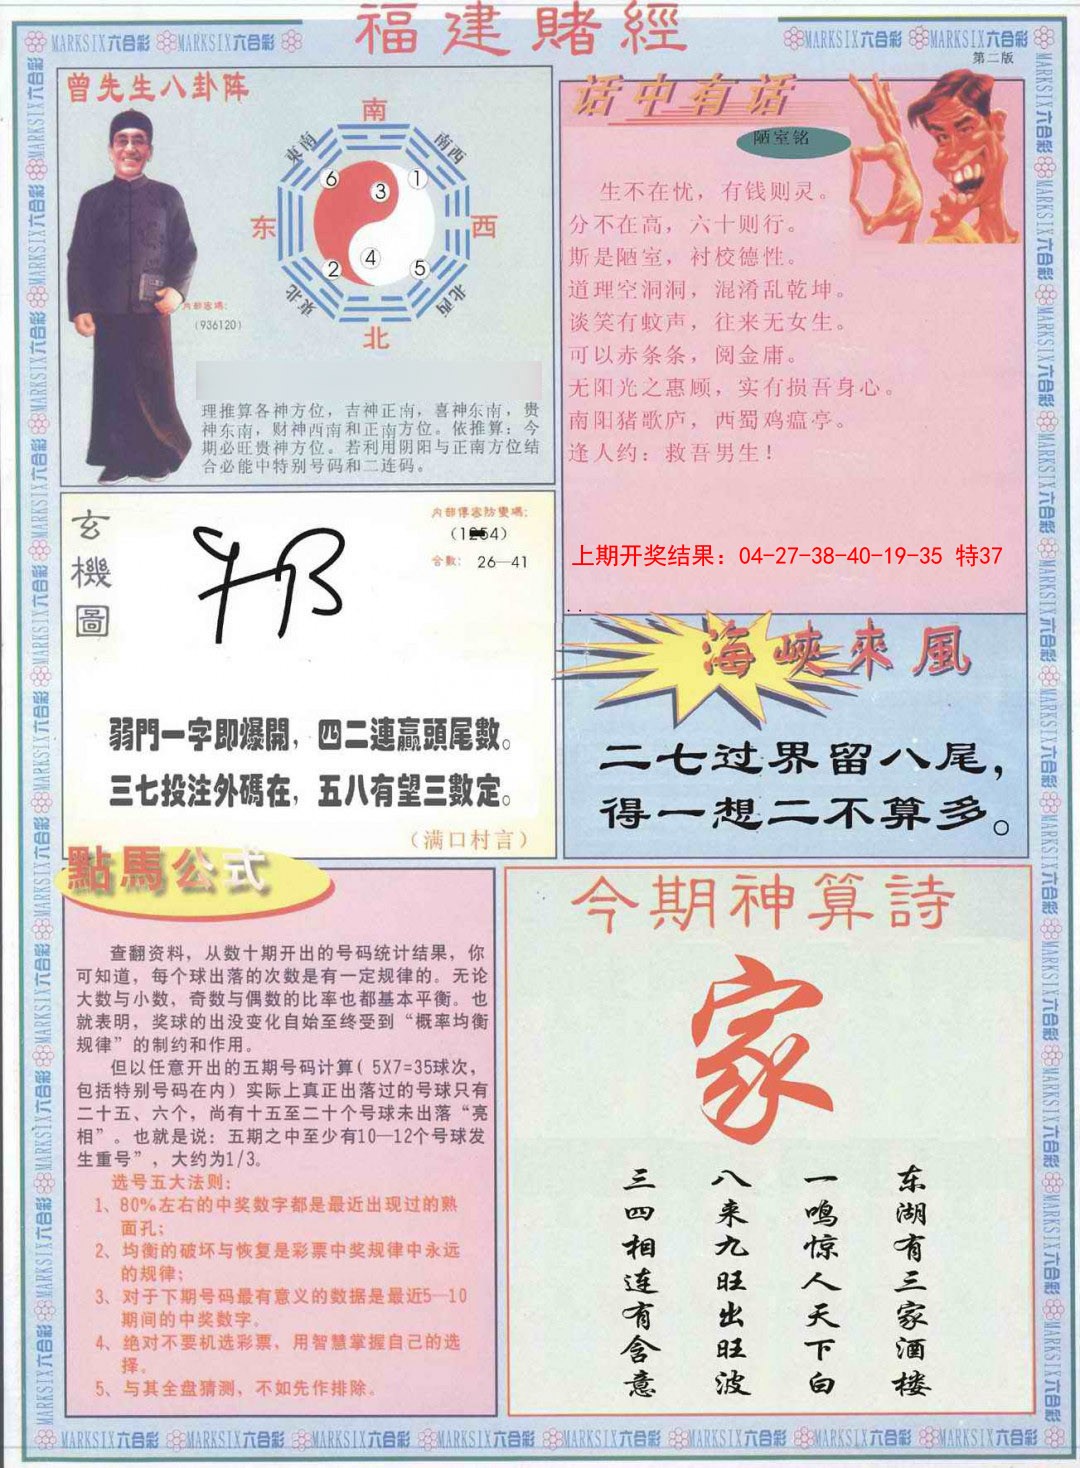 福建賭經
MARKSIX六合彩 MARKSIX六合彩
MARKSIX六合彩 MARKSIX六合彩
第二版
曾先生八卦阵
南
東南
南西
东
西
東北
北西
北
6
3
1
2
4
5
内部密碼:
(936120)
理推算各神方位，吉神正南，喜神东南，贵
神东南，财神西南和正南方位。依推算：今
期必旺贵神方位。若利用阴阳与正南方位结
合必能中特别号码和二连码。
话中有话
陋室铭
生不在忧，有钱则灵。
分不在高，六十则行。
斯是陋室，衬校德性。
道理空洞洞，混淆乱乾坤。
谈笑有蚊声，往来无女生。
可以赤条条，阅金庸。
无阳光之惠顾，实有损吾身心。
南阳猪歌庐，西蜀鸡瘟亭。
逢人约：救吾男生！
上期开奖结果：04-27-38-40-19-35 特37
玄機圖
内部傳密防變碼:
合數: 26—41
弱門一字即爆開，四二連贏頭尾數。
三七投注外碼在，五八有望三數定。
(满口村言)
海峽來風
二七过界留八尾，
得一想二不算多。
點馬公式
查翻资料，从数十期开出的号码统计结果，你
可知道，每个球出落的次数是有一定规律的。无论
大数与小数，奇数与偶数的比率也都基本平衡。也
就表明，奖球的出没变化自始至终受到“概率均衡
规律”的制约和作用。
但以任意开出的五期号码计算( 5X7=35球次，
包括特别号码在内) 实际上真正出落过的号球只有
二十五、六个，尚有十五至二十个号球未出落“亮
相”。也就是说：五期之中至少有10—12个号球发
生重号”，大约为1/3。
选号五大法则:
1、80%左右的中奖数字都是最近出现过的熟
面孔;
2、均衡的破坏与恢复是彩票中奖规律中永远
的规律;
3、对于下期号码最有意义的数据是最近5—10
期间的中奖数字。
4、绝对不要机选彩票，用智慧掌握自己的选
择。
5、与其全盘猜测，不如先作排除。
今期神算詩
家
东湖有三家酒楼
一鸣惊人天下白
八来九旺出旺波
三四相连有含意
MARKSIX六合彩 MARKSIX六合彩 MARKSIX六合彩 MARKSIX六合彩 MARKSIX六合彩 MARKSIX六合彩 MARKSIX六合彩 MARKSIX六合彩